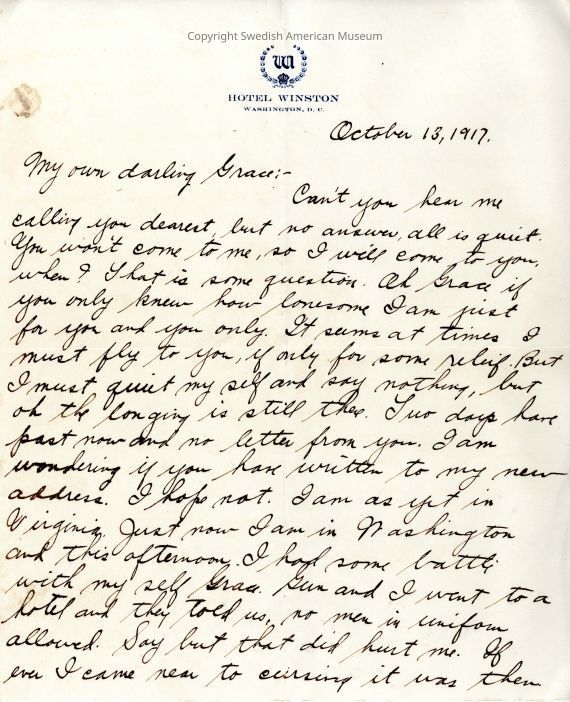 Copyright Swedish American Museum
W
HOTEL WINSTON
WASHINGTON, D. C.
October 13, 1917.
My own darling Grace:-
Can't you hear me
calling you dearest, but no answer, all is quiet.
You won't come to me, so I will come to you,
when? That is some question. Oh Grace if
you only knew how lonesome I am just
for you and you only. It seems at times I
must fly to you, if only for some releif. But
I must quiet my self and say nothing, but
oh the longing is still thee. Two days have
past now and no letter from you. I am
wondering if you have written to my new
address. I hope not. I am as yet in
Virginia. Just now I am in Washington
and this afternoon I had some battle
with my self Grace. Gun and I went to a
hotel and they told us, no men in uniform
allowed. Say but that did hurt me. If
ever I came near to cursing it was then.